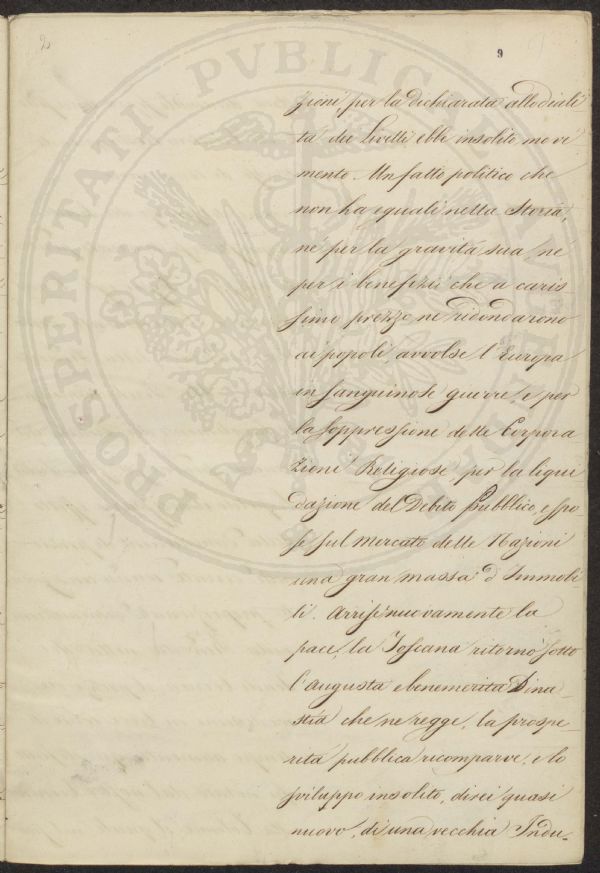 2
9
zioni, per la dichiarata allodiali
tà dei Livelli ebbe insolito movi
mento. Un fatto politico che
non ha eguali nella Storia,
nè per la gravità sua, nè
per i benefizii che a caris
simo prezzo ne ridondarono
ai popoli, avvolse l'Europa
in sanguinose guerre, e per
la soppressione delle Corpora
zioni Religiose, per la liqui
dazione del Debito Pubblico, espo
se sul mercato delle Nazioni
una gran massa d'Immobi
li. Arrise nuovamente la
pace, la Toscana ritornò sotto
l'augusta e benemerita Dina-
stia che ne regge, la prospe-
rità pubblica ricomparve, e lo
sviluppo insolito, direi quasi
nuovo, di una vecchia Indu-
PROSPERITATI PUBLICAE